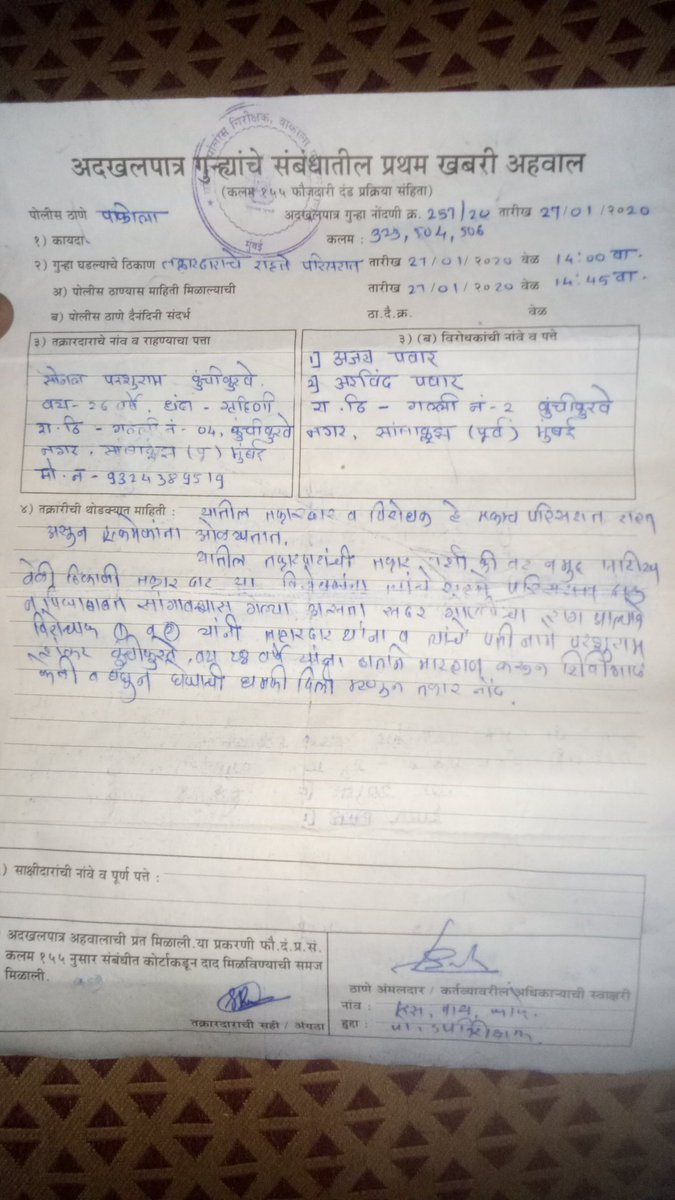 पोलीस निरीक्षक, वाकोला
मुंबई
अदखलपात्र गुन्ह्यांचे संबंधातील प्रथम खबरी अहवाल
(कलम १५५ फौजदारी दंड प्रक्रिया संहिता)
पोलीस ठाणे वाकोला अदखलपात्र गुन्हा नोंदणी क्र. 257/20 तारीख 27/01/2020
१) कायदा कलम : 323, 504, 506
२) गुन्हा घडल्याचे ठिकाण तक्रारदाराचे राहते परिसरात तारीख 27/01/2020 वेळ 14:00 वा.
अ) पोलीस ठाण्यास माहिती मिळाल्याची तारीख 27/01/2020 वेळ 14:45 वा.
ब) पोलीस ठाणे दैनंदिनी संदर्भ ठा.दै.क्र. वेळ
३) तक्रारदाराचे नांव व राहण्याचा पत्ता
सोनल परशुराम कुंचीकुरवे
वय - 26 वर्षे, धंदा - गृहिणी
रा. ठि - गल्ली नं - 04, कुंचीकुरवे
नगर, सांताक्रूझ (पू) मुंबई
मो. न - 9324389519
३) (ब) विरोधकांची नांवे व पत्ते
1] अजय पवार
2] अरविंद पवार
रा. ठि - गल्ली नं - 2 कुंचीकुरवे
नगर, सांताक्रूझ (पूर्व) मुंबई
४) तक्रारीची थोडक्यात माहिती : यातील तक्रारदार व विरोधक हे एकाच परिसरात राहत
असुन एकमेकांना ओळखतात.
यातील तक्रारदारांची तक्रार अशी की वर नमुद तारीख
वेळी ठिकाणी तक्रारदार या विरोधकांना त्यांचे राहते परिसरात दारू
न पिण्याबाबत सांगावयास गेल्या असता सदर
विरोधक 1 व 2 यांनी तक्रारदार यांना व त्यांचे पती नामे परशुराम
कुंचीकुरवे, वय 28 वर्षे यांना हाताने मारहाण करून शिवीगाळ
केली व बघुन घेण्याची धमकी दिली म्हणून तक्रार नोंद.
) साक्षीदारांची नांवे व पूर्ण पत्ते :
अदखलपात्र अहवालाची प्रत मिळाली. या प्रकरणी फौ.दं.प्र.सं.
कलम १५५ नुसार संबंधीत कोर्टाकडून दाद मिळविण्याची समज
मिळाली.
तक्रारदाराची सही / अंगठा
ठाणे अंमलदार / कर्तव्यावरील अधिकाऱ्याची स्वाक्षरी
नांव :
हुद्दा :